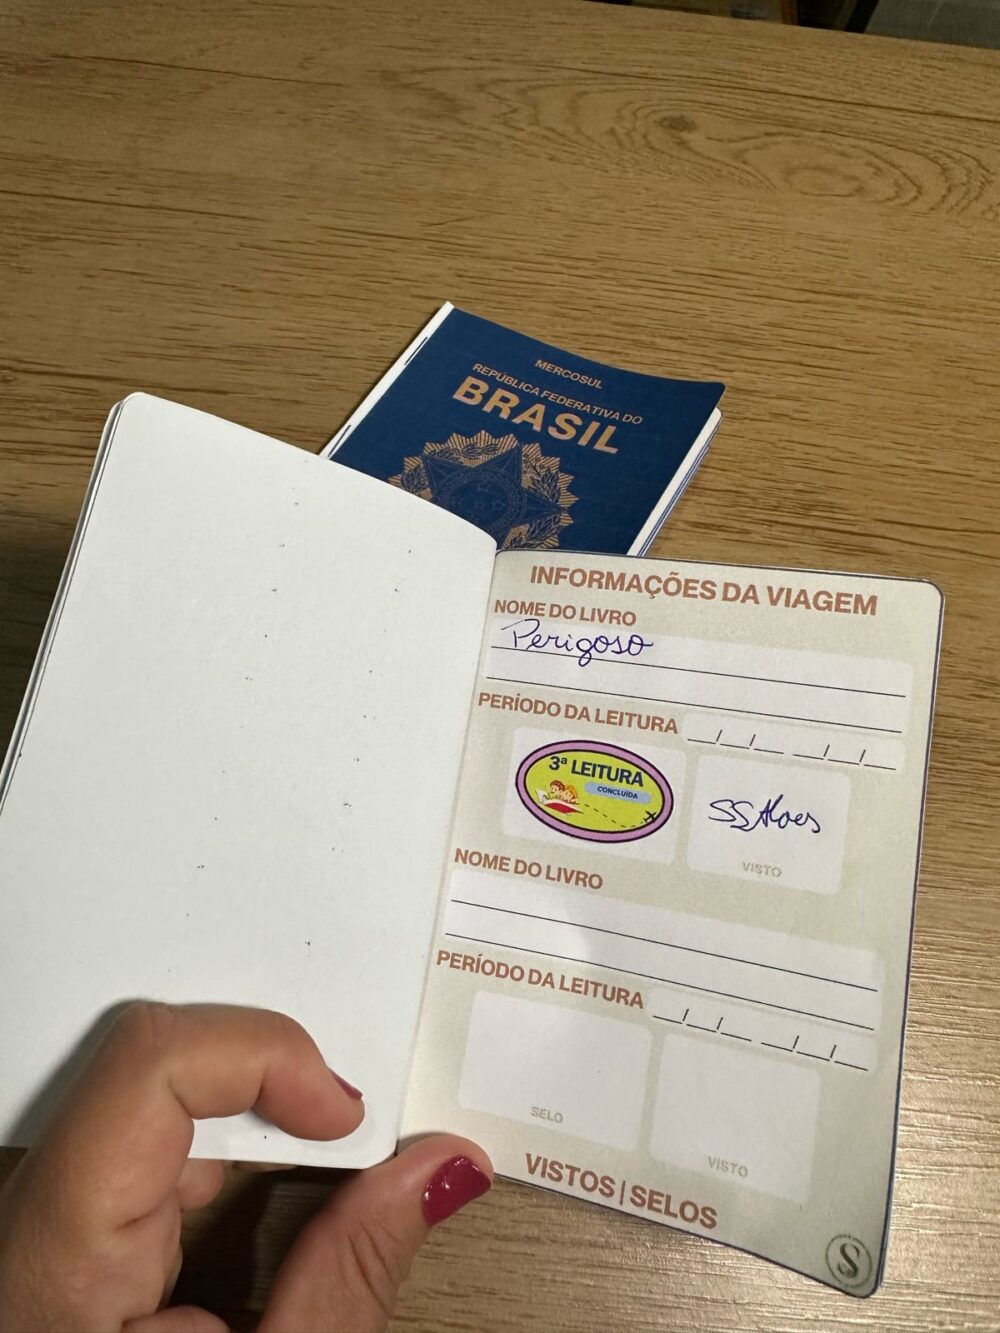 MERCOSUL
REPÚBLICA FEDERATIVA DO
BRASIL
INFORMAÇÕES DA VIAGEM
NOME DO LIVRO
Perigoso
PERÍODO DA LEITURA __/__/__ __/__/__
3ª LEITURA
CONCLUÍDA
VISTO
NOME DO LIVRO
PERÍODO DA LEITURA __/__/__ __/__/__
SELO
VISTO
VISTOS | SELOS
S